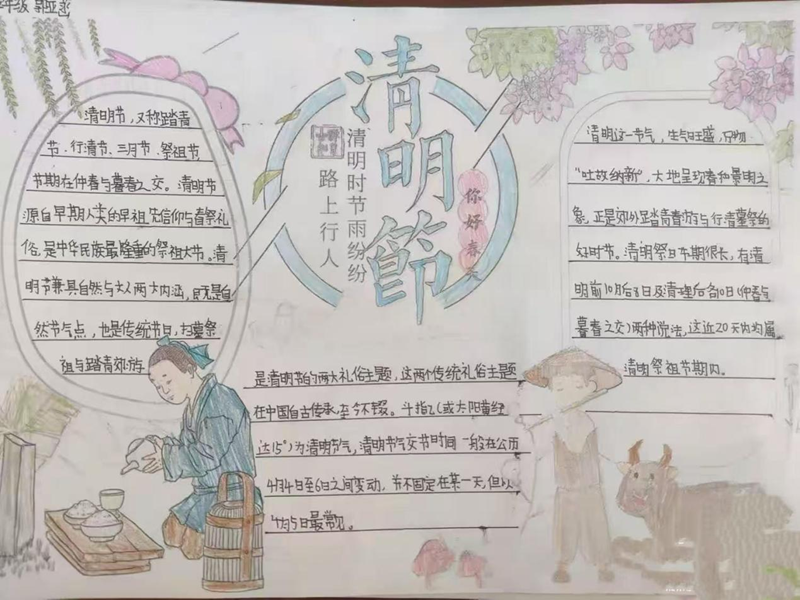 清明節
清明时节雨纷纷
路上行人
你好春天
清明节，又称踏青
节、行清节、三月节、祭祖节
节期在仲春与暮春之交。清明节
源自早期人类的早祖先信仰与春祭礼
俗，是中华民族最隆重的祭祖大节。清
明节兼具自然与人文两大内涵，既是自
然节气点，也是传统节日，扫墓祭
祖与踏青郊游
是清明节的两大礼俗主题，这两个传统礼俗主题
在中国自古传承，至今不辍。斗指乙（或太阳黄经
达15°）为清明节气，清明节气交节时间一般在公历
4月4日至6日之间变动，节不固定在某一天，但以
4月5日最常见。
清明这一节气，生气旺盛，万物
“吐故纳新”，大地呈现春和景明之
象，正是郊外踏青春游与行清墓祭的
好时节。清明祭日节期很长，有清
明前10日后8日及清明前后10日（仲春与
暮春之交）两种说法，这近20天内均属
清明祭祖节期内。